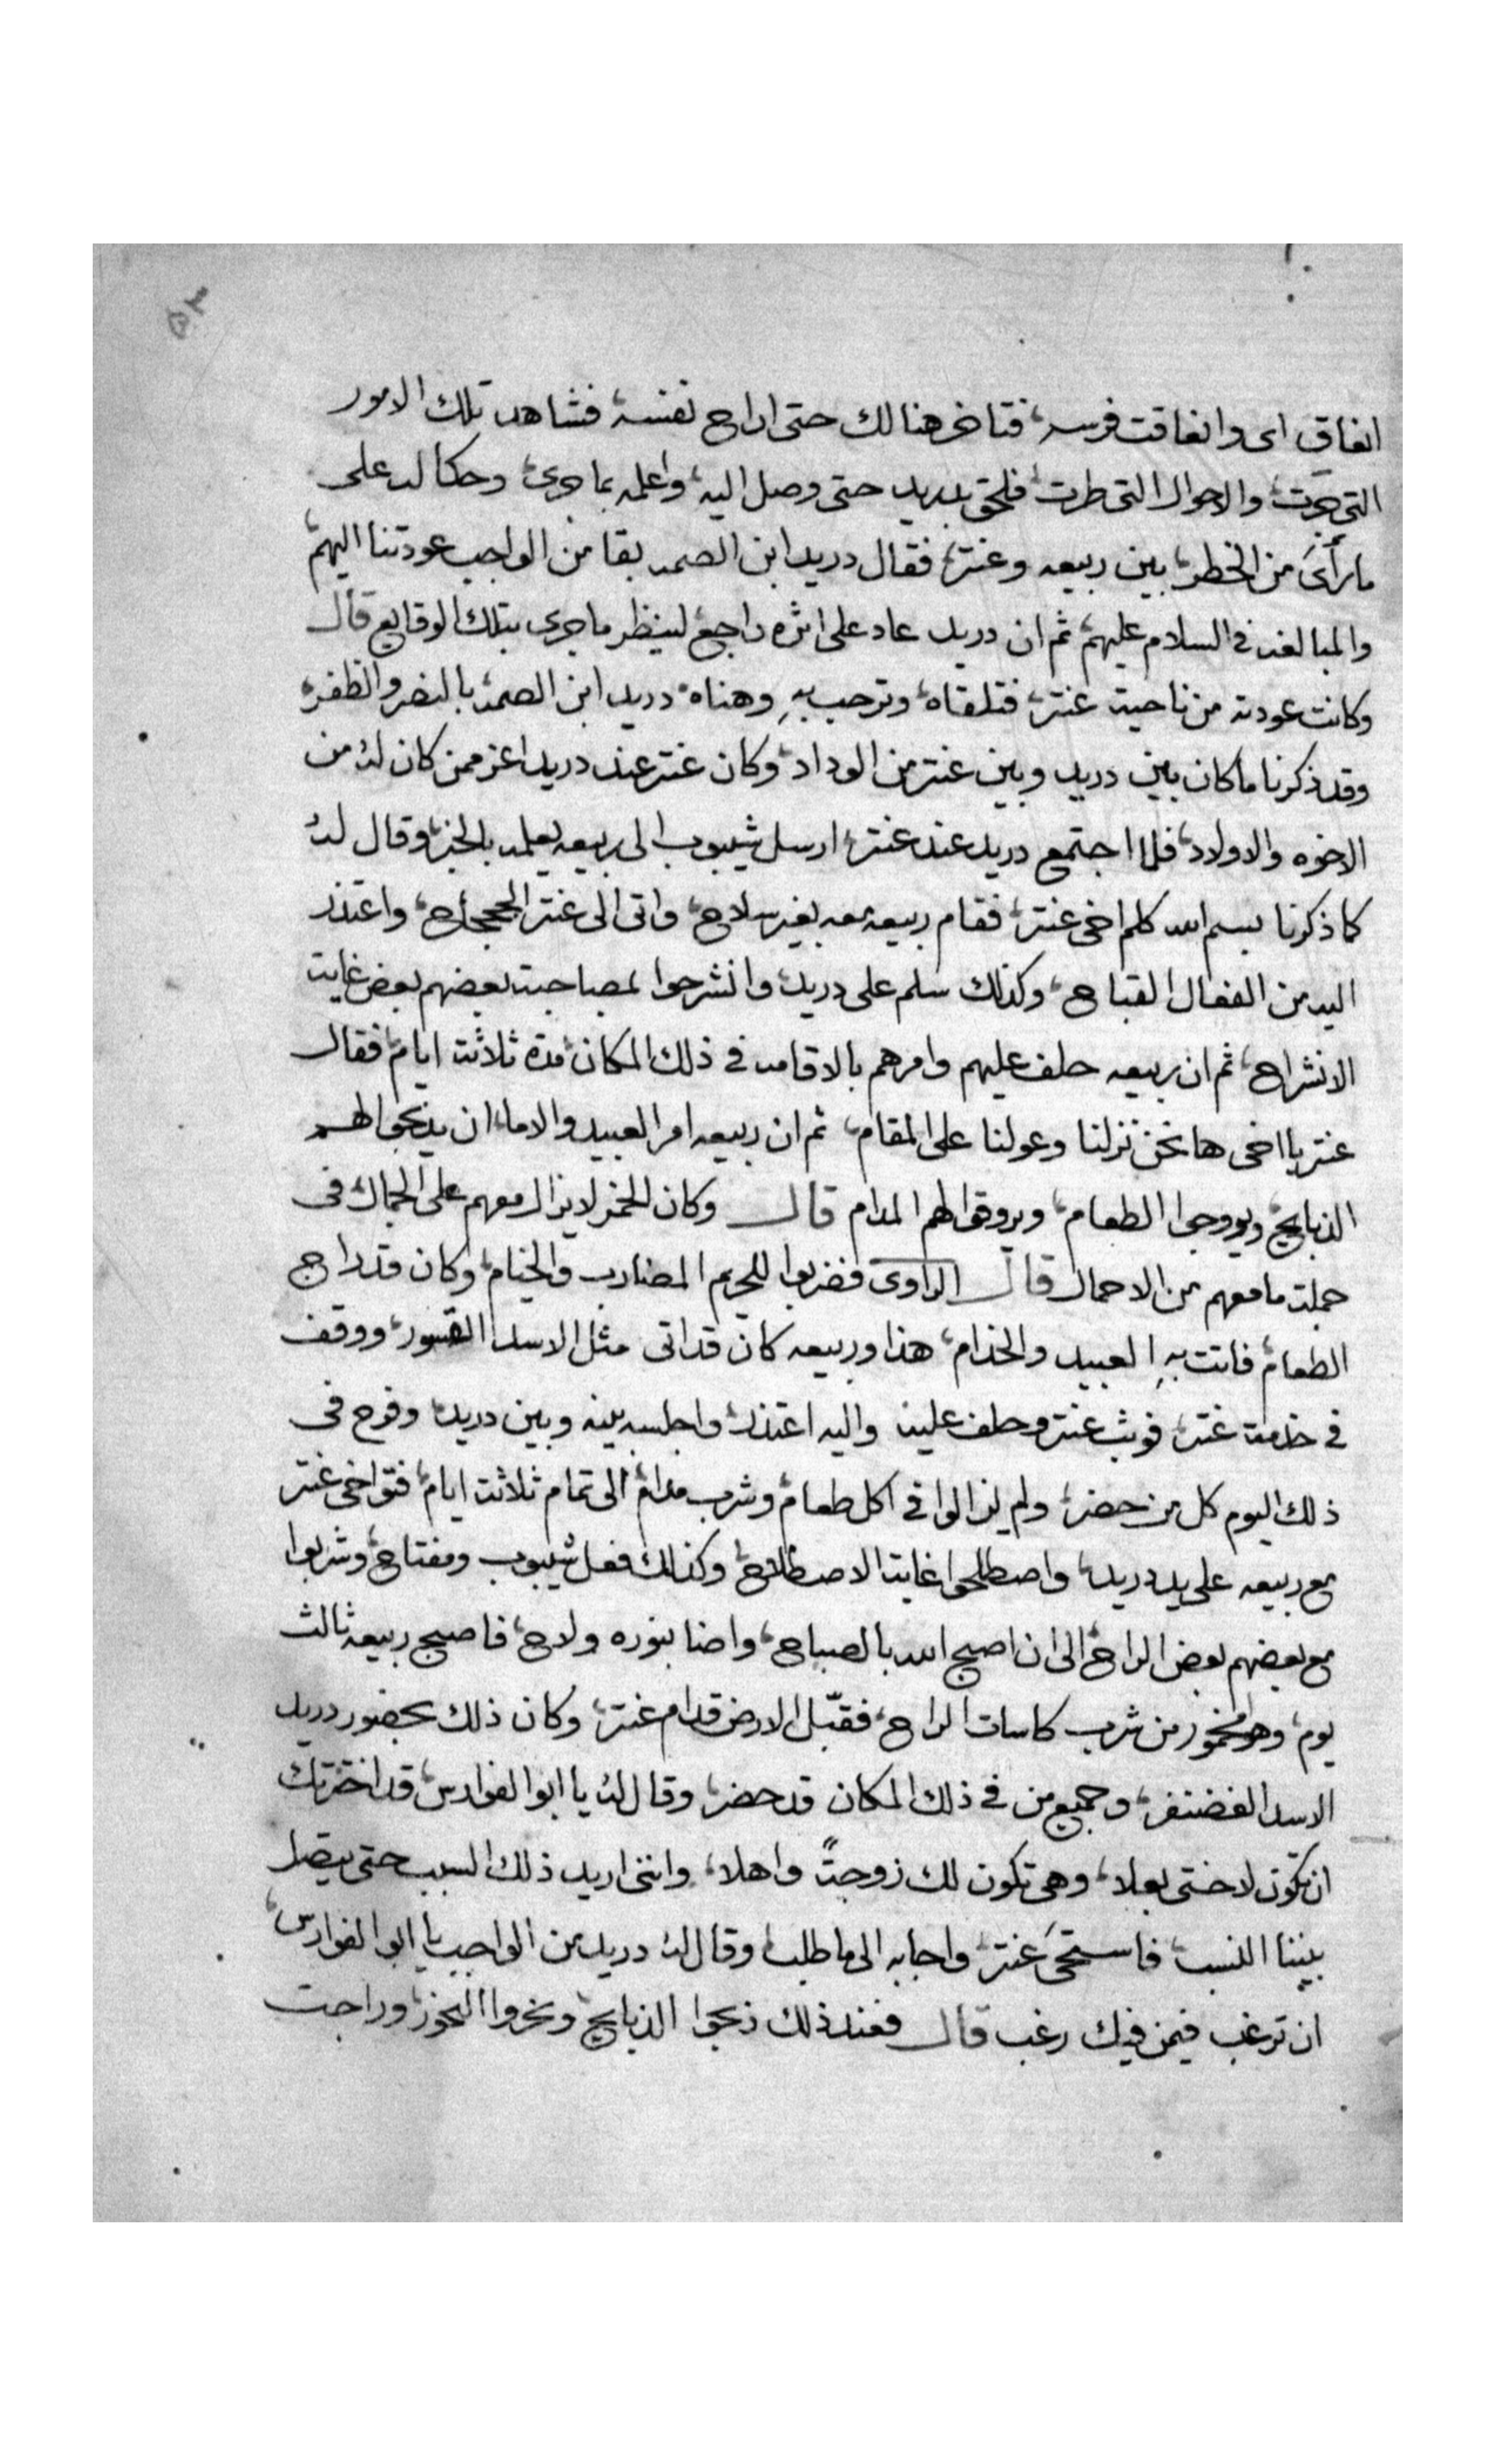 ٥٢
انفاق اى وانفاقت فرسه، فتاخر هنالك حتى اراح نفسه، فشاهد تلك الامور
التى جرت، والاحوال التى طرت، فلحق بدريد حتى وصل اليه، واعلمه بما جرى، وحكا له على
ما رأى من الخطر، بين ربيعه وعنتر، فقال دريد ابن الصمه بقا من الواجب عودتنا اليهم،
والمبالغه فى السلام عليهم، ثم ان دريد عاد على اثره راجع، لينظر ما جرى بتلك الوقايع قال
وكانت عودته من ناحية عنتر، فتلقاه، وترحب به وهناه، دريد ابن الصمه، بالنصر والظفر،
وقد ذكرنا ما كان بين دريد وبين عنتر من الوداد، وكان عنتر عند دريد اعز ممن كان له من
الاخوه والاولاد، فلما اجتمع دريد عند عنتر، ارسل شيبوب الى ربيعه يعلمه بالخبر، وقال له
كما ذكرنا بسم الله كلم اخى عنتر، فقام ربيعه معه بغير سلاح، واتى الى عنتر الجحجاح، واعتذر
اليه من الفعال القباح، وكذلك سلم على دريد، وانشرحوا لمصاحبة بعضهم بعض غاية
الانشراح، ثم ان ربيعه حلف عليهم وامرهم بالاقامه فى ذلك المكان، مدة ثلاثة ايام، فقال
عنتر يا اخى ها نحن نزلنا وعولنا على المقام، ثم ان ربيعه امر العبيد والاما، ان يذبحوا لهم
الذبايح، ويروجوا الطعام، ويروقوا لهم المدام قال وكان الخمر لا يزال معهم على الجمال، فى
جملة ما معهم من الاحمال قال الراوى فضربوا للحريم المضارب والخيام، وكان قد راج
الطعام، فاتت به العبيد والخدام، هذا وربيعه كان قد اتى مثل الاسد القسور، ووقف
فى خدمة عنتر، فوثب عنتر وحلف عليه واليه اعتذر، واجلسه بينه وبين دريد، وفرح فى
ذلك اليوم كل من حضر، ولم يزالوا فى اكل طعام، وشرب مدام، الى تمام ثلاثة ايام، فتواخى عنتر
مع ربيعه على يد دريد، واصطلحوا غاية الاصطلاح، وكذلك فعل شيبوب ومفتاح، وشربوا
مع بعضهم بعض الراح، الى ان اصبح الله بالصباح، واضا بنوره ولاح، فاصبح ربيعه ثالث
يوم، وهو مخمور من شرب كاسات الراح، فقبّل الارض قدام عنتر، وكان ذلك بحضور دريد
الاسد الغضنفر، وجميع من فى ذلك المكان قد حضر، وقال له يا ابو الفوارس، قد اخترتك
ان تكون لاختى بعلا، وهى تكون لك زوجةً واهلا، واننى اريد ذلك السبب حتى يتصل
بيننا النسب، فاستحى عنتر، واجابه الى ما طلب، وقال له دريد من الواجب يا ابو الفوارس،
ان ترغب فيمن فيك رغب قال فعند ذلك ذبحوا الذبايح، ونحروا النحور، وراجت